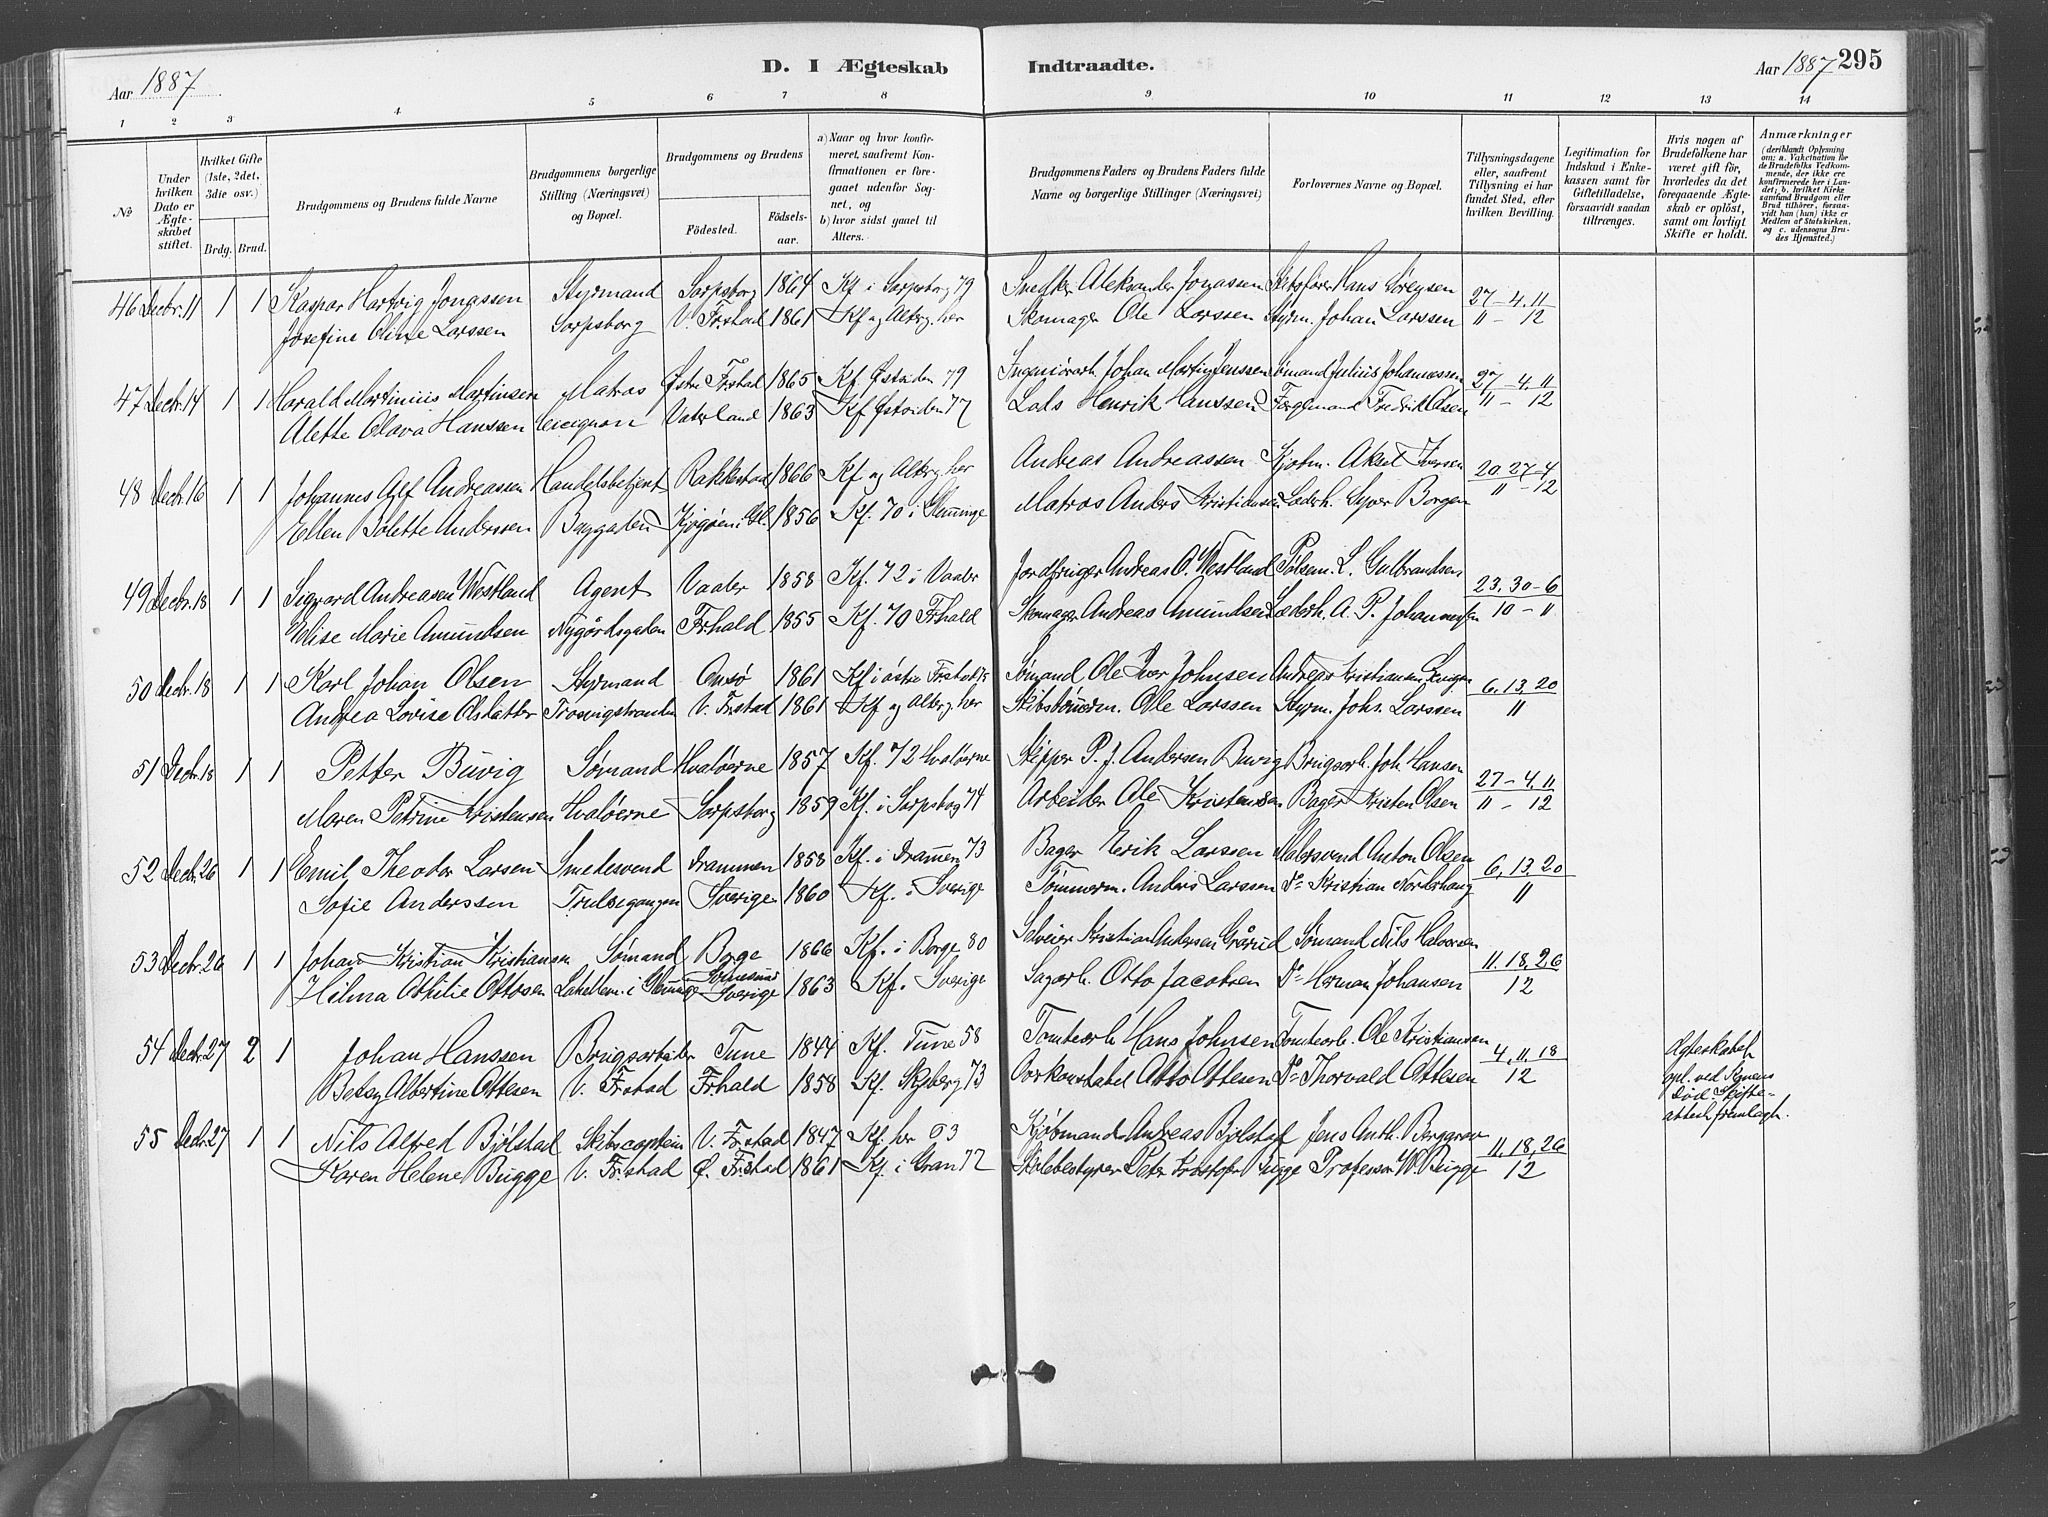 Aar 1887
D. I Ægteskab Indtraadte.
Aar 1887 295
1 2 3 4 5 6 7 8 9 10 11 12 13 14
No
Under hvilken Dato er Ægteskabet stiftet.
Hvilket Gifte (1ste, 2det, 3die osv.)
Brdg. Brud.
Brudgommens og Brudens fulde Navne
Brudgommens borgerlige Stilling (Næringsvei) og Bopæl.
Brudgommens og Brudens
Fødested. Fødselsaar.
a) Naar og hvor konfirmeret, saafremt Konfirmationen er foregaaet udenfor Sognet, og
b) hvor sidst gaaet til Alters.
Brudgommens Faders og Brudens Faders fulde Navne og borgerlige Stillinger (Næringsvei)
Forlovernes Navne og Bopæl.
Tillysningsdagene eller, saafremt Tillysning ei har fundet Sted, efter hvilken Bevilling.
Legitimation for Indskud i Enkekassen samt for Giftetilladelse, forsaavidt saadan tiltrænges.
Hvis nogen af Brudefolkene har været gift før, hvorledes da det foregaaende Ægteskab er opløst, samt om lovligt Skifte er holdt.
Anmærkninger (deriblandt Oplysning om: a. Vakcination for de Brudefolks Vedkommende, der ikke ere konfirmerede her i Landet; b. hvilket Kirkesamfund Brudgom eller Brud tilhører, forsaavidt han (hun) ikke er Medlem af Statskirken, og c. udensogns Brudes Hjemsted.)
46 Decbr. 11 1 1 Kaspar Hartvig Jonassen Styrmand Sarpsborg 1864 Kf. i Sarpsborg 79 Snedker Aleksander Jonassen Skibsfører Hans Sørensen 27 - 4, 11
Josefine Oline Larssen Sarpsborg V. Fr.stad 1861 Kf og Alterg. her Skomager Ole Larssen Styrm. Johan Larssen 11 - 12
47 Decbr. 14 1 1 Harald Martinius Martinsen Matros Østre Fr.stad 1865 Kf. Østsiden 79 Johan Martin Jenssen Sømand Julius Johannessen 27 - 4, 11
Alette Olava Hanssen Vaterland 1863 Kf Østsiden 77 Lods Henrik Hanssen Færgemand Fredrik Olsen 11 - 12
48 Decbr. 16 1 1 Johannes Alf Andreassen Handelsbetjent Rakkestad 1866 Kf og Alterg. her Andreas Andreassen Kjøbm. Aksel Iversen 20, 27 - 4
Ellen Solette Anderssen Baggaden Kjøgøen i Gl. 1856 Kf. 70 i Glemminge Matros Anders Kristiansen Læderh. Syver Borgen 11 - 12
49 Decbr. 18 1 1 Sigvard Andreasen Westland Agent Vaaler 1858 Kf. 72 i Vaaler Jordbruger Andreas O. Westland Pølsem. L. Gulbrandsen 23, 30 - 6
Elise Marie Amundsen Nygårdsgaden Fr.hald 1855 Kf. 70 Fr.hald Skomager Andreas Amundsen Læderh. A. P. Johannessen 10 - 11
50 Decbr. 18 1 1 Karl Johan Olsen Styrmand Onsø 1861 Kf i østre Fr.stad 75 Sømand Ole Iver Johnsen Andreas Kristiansen 6, 13, 20
Andrea Lovise Olsdatter Trosvigstranden V. Fr.stad 1861 Kf og Alterg. her Skibstømmerm. Ole Larssen Styrm. Johs. Larssen 11
51 Decbr. 18 1 1 Petter Buvig Sømand Hvaløerne 1857 Kf. 72 Hvaløerne Skipper P. J. Andersen Buvig Brugsarb. Joh. Hansen 27 - 4, 11
Maren Petrine Kristensen Hvaløerne Sarpsborg 1859 Kf. i Sarpsborg 74 Arbeider Ole Kristensen Bager Kristen Olsen 11 - 12
52 Decbr. 26 1 1 Emil Theodor Larsen Smedesvend Drammen 1858 Kf. i Drammen 73 Bager Erik Larssen Malersvend Anton Olsen 6, 13, 20
Sofie Anderssen Trulsegangen Sverige 1860 Kf. i Sverige Tømmerm. Anders Larssen Do Kristian Nordshaug 11
53 Decbr. 26 1 1 Johan Kristian Kristiansen Sømand Borge 1866 Kf. i Borge 80 Selveier Kristian Andersen Grårud Sømand Nils Halvorsen 11, 18, 26
Hilma Othilie Ottosen i Glemminge Sverige 1863 Kf. Sverige Sagarb. Otto Jacobsen Do Herman Johansen 12
54 Decbr. 27 2 1 Johan Hanssen Brugsarbeider Tune 1844 Kf. Tune 58 Tomtearb. Hans Johnsen Tomtearb. Ole Kristiansen 4, 11, 18 Ægteskabet
Betsy Albertine Ottesen V. Fr.stad Fr.hald 1858 Kf. Skjeberg 73 Ovrkonstabel Otto Ottesen Do Thorvald Ottesen 12 opl. ved Konens Död. Skifteattest fremlagt.
55 Decbr. 27 1 1 Nils Alfred Bjølstad Skibscaptein V. Fr.stad 1847 Kf. her 63 Kjøbmand Andreas Bjølstad Jens Anth. Berggrav 11, 18, 26
Karen Helene Bugge V. Fr.stad Ø. Fr.stad 1861 Kf. i Gran 77 Skolebestyrer Peter Kristofer Bugge Professor W. Bugge 12